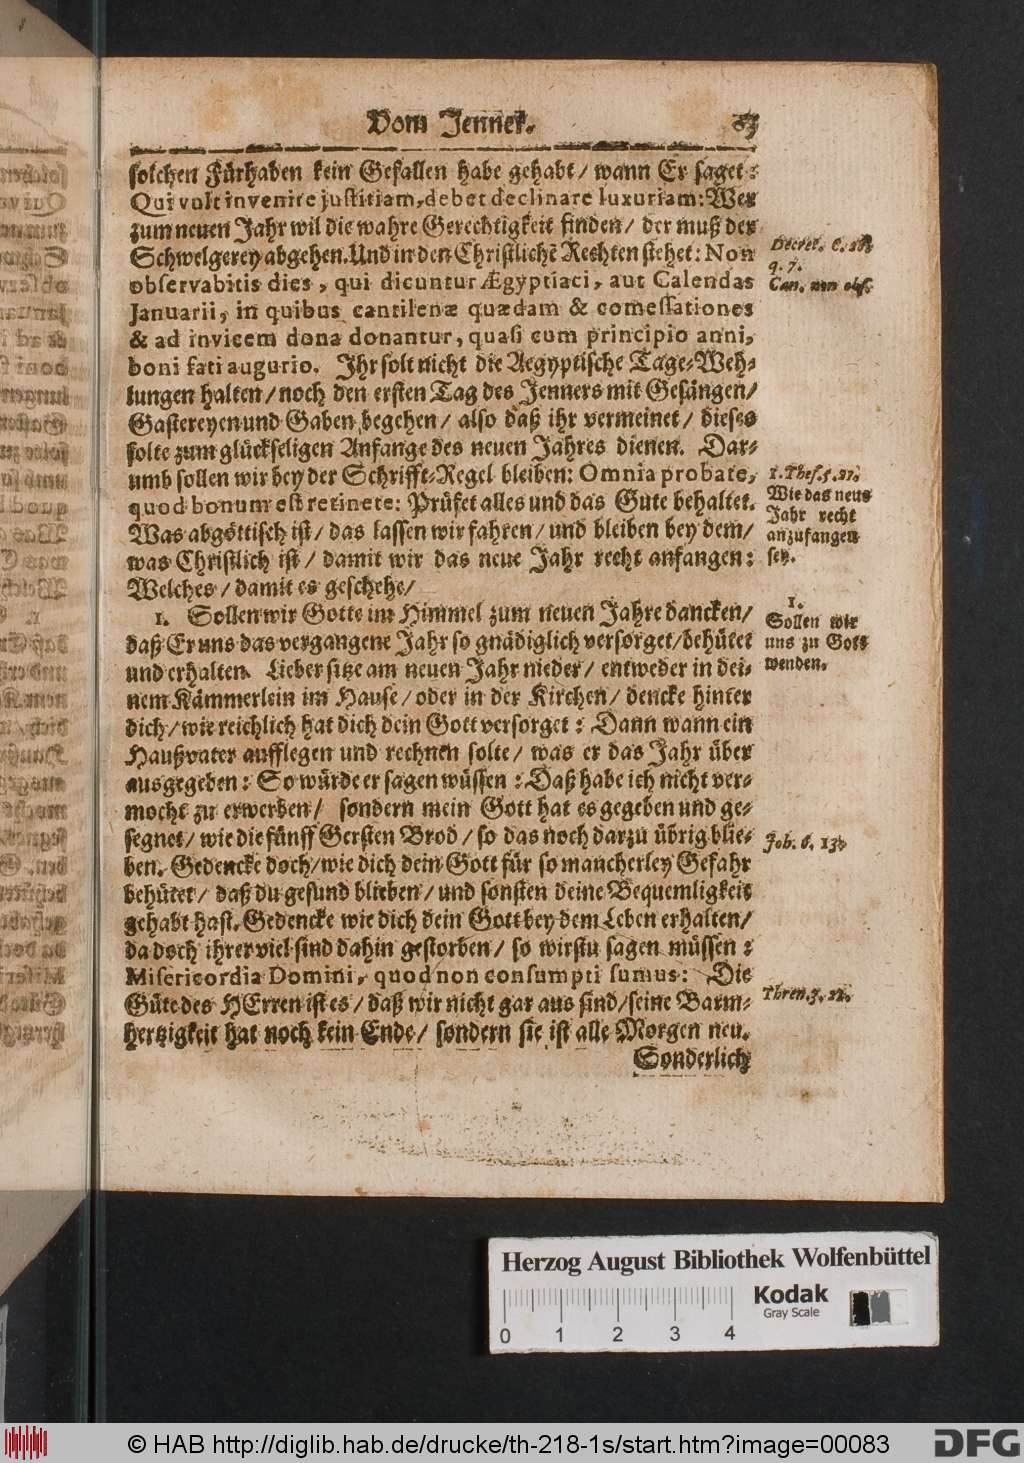 Vom Jenner. 83
solchen Fürhaben kein Gefallen habe gehabt / wann Er saget:
Qui vult invenire justitiam, debet declinare luxuriam: Wer
zum neuen Jahr wil die wahre Gerechtigkeit finden / der muß der
Schwelgerey abgehen. Und in den Christlichẽ Rechten stehet: Non
observabitis dies, qui dicuntur Ægyptiaci, aut Calendas
Januarii, in quibus cantilenæ quædam & comessationes
& ad invicem dona donantur, quasi cum principio anni,
boni fati augurio. Ihr solt nicht die Aegyptische Tage-Weh-
lungen halten / noch den ersten Tag des Jenners mit Gesängen /
Gastereyen und Gaben begehen / also daß ihr vermeinet / dieses
solte zum glückseligen Anfange des neuen Jahres dienen. Dar-
umb sollen wir bey der Schrifft-Regel bleiben: Omnia probate,
quod bonum est retinete: Prüfet alles und das Gute behaltet.
Was abgöttisch ist / das lassen wir fahren / und bleiben bey dem /
was Christlich ist / damit wir das neue Jahr recht anfangen:
Welches / damit es geschehe /
1. Sollen wir Gotte im Himmel zum neuen Jahre dancken /
daß Er uns das vergangene Jahr so gnädiglich versorget / behütet
und erhalten. Lieber sitze am neuen Jahr nieder / entweder in dei-
nem Kämmerlein im Hause / oder in der Kirchen / dencke hinter
dich / wie reichlich hat dich dein Gott versorget: Dann wann ein
Haußvater aufflegen und rechnen solte / was er das Jahr über
ausgegeben: So würde er sagen müssen: Daß habe ich nicht ver-
mocht zu erwerben / sondern mein Gott hat es gegeben und ge-
segnet / wie die fünff Gersten Brod / so das noch darzu übrig blie-
ben. Gedencke doch / wie dich dein Gott für so mancherley Gefahr
behütet / daß du gesund blieben / und sonsten deine Bequemligkeit
gehabt hast. Gedencke wie dich dein Gott bey dem Leben erhalten /
da doch ihrer viel sind dahin gestorben / so wirstu sagen müssen:
Misericordia Domini, quod non consumpti sumus: Die
Güte des HErren ist es / daß wir nicht gar aus sind / seine Barm-
hertzigkeit hat noch kein Ende / sondern sie ist alle Morgen neu.
Sonderlich
Decret. c. 26.
q. 7.
Can. non obs.
1. Thes. 5. 21.
Wie das neue
Jahr recht
anzufangen
sey.
1.
Sollen wir
uns zu Gott
wenden.
Joh. 6. 13.
Thren. 3. 22.
Herzog August Bibliothek Wolfenbüttel
Kodak
Gray Scale
0 1 2 3 4
© HAB http://diglib.hab.de/drucke/th-218-1s/start.htm?image=00083
DFG